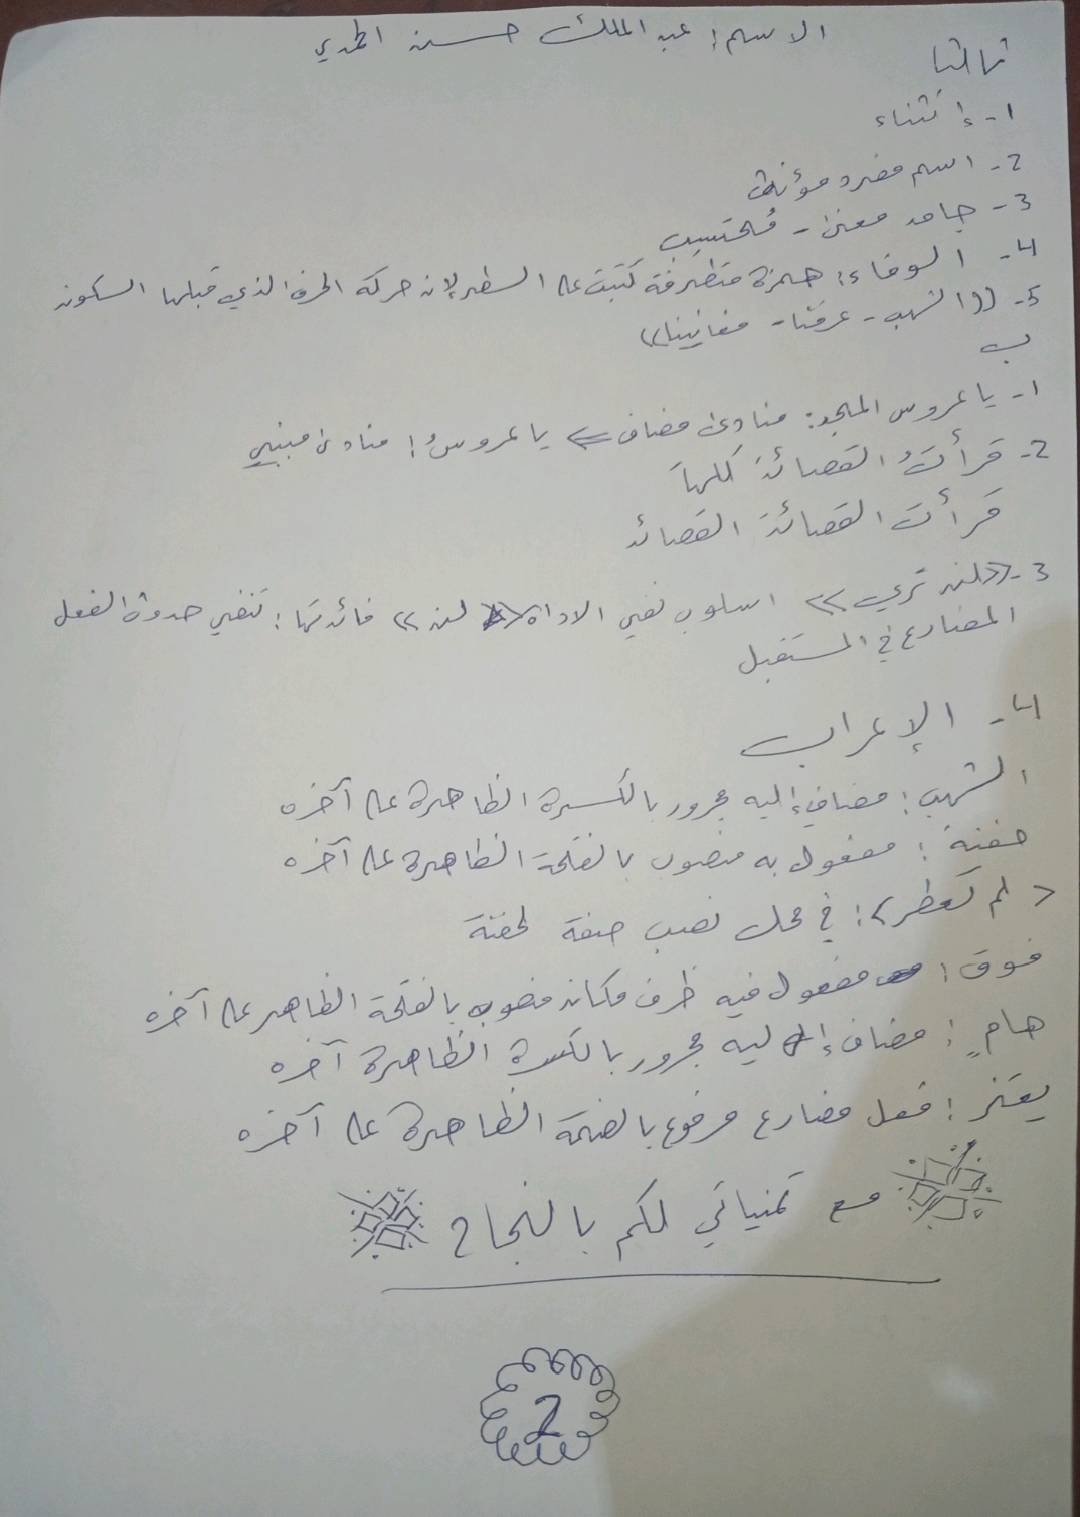 الاسم: عبد الملك حسن الحمدي
ثالثا
1- إنثناء
2- اسم مفرد مؤنث
3- جامد معنى - مُحتسِب
4- الوفاء: همزة متطرفة كتبت على السطر لان حركة الحرف الذي قبلها السكون
5- ((الشهب - عرفتنا - مغانينا))
ب
1- يا عروس المجد: منادى مضاف <= يا عروسُ: منادى مبني
2- قرأتُ القصائدَ كلها
قرأت القصائدَ القصائد
3- <<لن تري>> اسلوب نفي الاداة << لن >> فائدتها: تنفي حدوث الفعل
المضارع في المستقبل
4- الإعراب
الشهب: مضاف إليه مجرور بالكسرة الظاهرة على آخره
حفنة: مفعول به منصوب بالفتحة الظاهرة على آخره
< لم تعطر >: في محل نصب صفة لحفنة
فوق: مفعول فيه ظرف مكان منصوب بالفتحة الظاهر على آخره
هامٍ: مضاف إليه مجرور بالكسرة الظاهرة آخره
يعتز: فعل مضارع مرفوع بالضمة الظاهرة على آخره
مع تمنياتي لكم بالنجاح
2